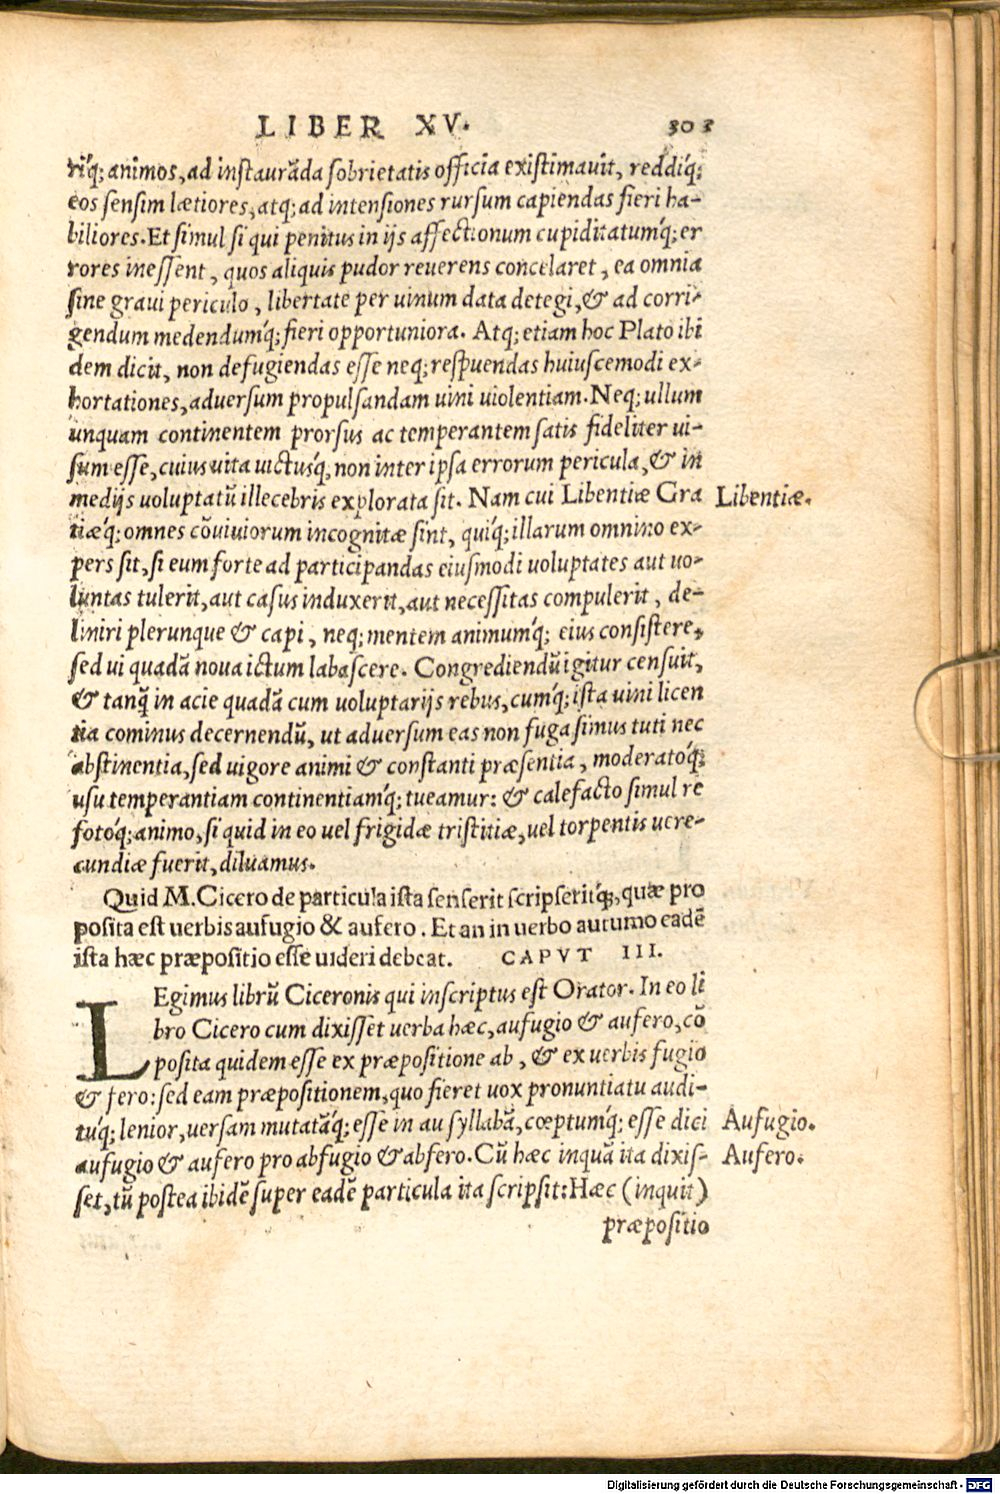 LIBER XV. 303
ríq; animos, ad instaurãda sobrietatis officia existimauit, reddíq;
eos sensim lætiores, atq; ad intensiones rursum capiendas fieri ha-
biliores. Et simul si qui penitus in ijs affectionum cupiditatumq́; er
rores inessent, quos aliquis pudor reuerens concelaret, ea omnia
sine graui periculo, libertate per uinum data detegi, & ad corri-
gendum medendumq́; fieri opportuniora. Atq; etiam hoc Plato ibi
dem dicit, non defugiendas esse neq; respuendas huiuscemodi ex-
hortationes, aduersum propulsandam uini uiolentiam. Neq; ullum
unquam continentem prorsus ac temperantem satis fideliter ui-
sum esse, cuius uita uictusq́, non inter ipsa errorum pericula, & in
medijs uoluptatũ illecebris explorata sit. Nam cui Libentiæ Gra
Libentiæ.
tiæq́; omnes cõuiuiorum incognitæ sint, quiq́; illarum omnino ex-
pers sit, si eum forte ad participandas eiusmodi uoluptates aut uo-
luntas tulerit, aut casus induxerit, aut necessitas compulerit, de-
liniri plerunque & capi, neq; mentem animumq́; eius consistere,
sed ui quadã noua ictum labascere. Congrediendũ igitur censuit,
& tanq̃ in acie quadã cum uoluptarijs rebus, cumq́; ista uini licen
tia cominus decernendũ, ut aduersum eas non fuga simus tuti nec
abstinentia, sed uigore animi & constanti præsentia, moderatoq́;
usu temperantiam continentiamq́; tueamur: & calefacto simul re
fotoq́; animo, si quid in eo uel frigidæ tristitiæ, uel torpentis uere-
cundiæ fuerit, diluamus.
Quid M. Cicero de particula ista senserit scripseritq́;, quæ pro
posita est uerbis aufugio & aufero. Et an in uerbo autumo eadẽ
ista hæc præpositio esse uideri debeat. CAPVT III.
LEgimus librũ Ciceronis qui inscriptus est Orator. In eo li
bro Cicero cum dixisset uerba hæc, aufugio & aufero, cõ
posita quidem esse ex præpositione ab, & ex uerbis fugio
& fero: sed eam præpositionem, quo fieret uox pronuntiatu audi-
tuq́; lenior, uersam mutatãq́; esse in au syllabã, cœptumq́; esse dici
Aufugio.
aufugio & aufero pro abfugio & abfero. Cũ hæc inquã ita dixis-
Aufero.
set, tũ postea ibidẽ super eadẽ particula ita scripsit: Hæc (inquit)
præpositio
Digitalisierung gefördert durch die Deutsche Forschungsgemeinschaft - DFG